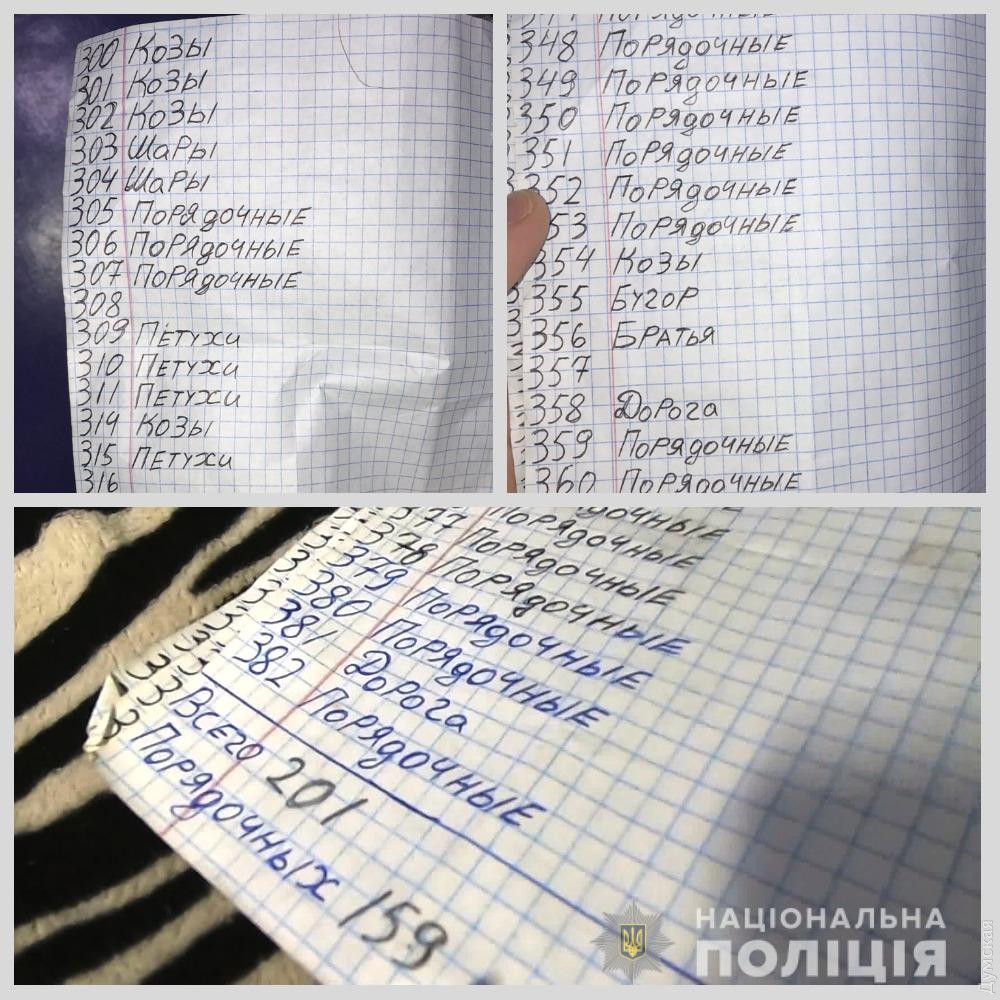 300 Козы
301 Козы
302 Козы
303 Шары
304 Шары
305 Порядочные
306 Порядочные
307 Порядочные
308
309 Петухи
310 Петухи
311 Петухи
314 Козы
315 Петухи
316
348 Порядочные
349 Порядочные
350 Порядочные
351 Порядочные
352 Порядочные
53 Порядочные
354 Козы
355 Бугор
356 Братья
357
358 Дорога
359 Порядочные
360 Порядочные
377 Порядочные
378 Порядочные
379 Порядочные
380 Порядочные
381 Дорога
382 Порядочные
Всего 201
Порядочных 159
НАЦІОНАЛЬНА
ПОЛІЦІЯ
Думская